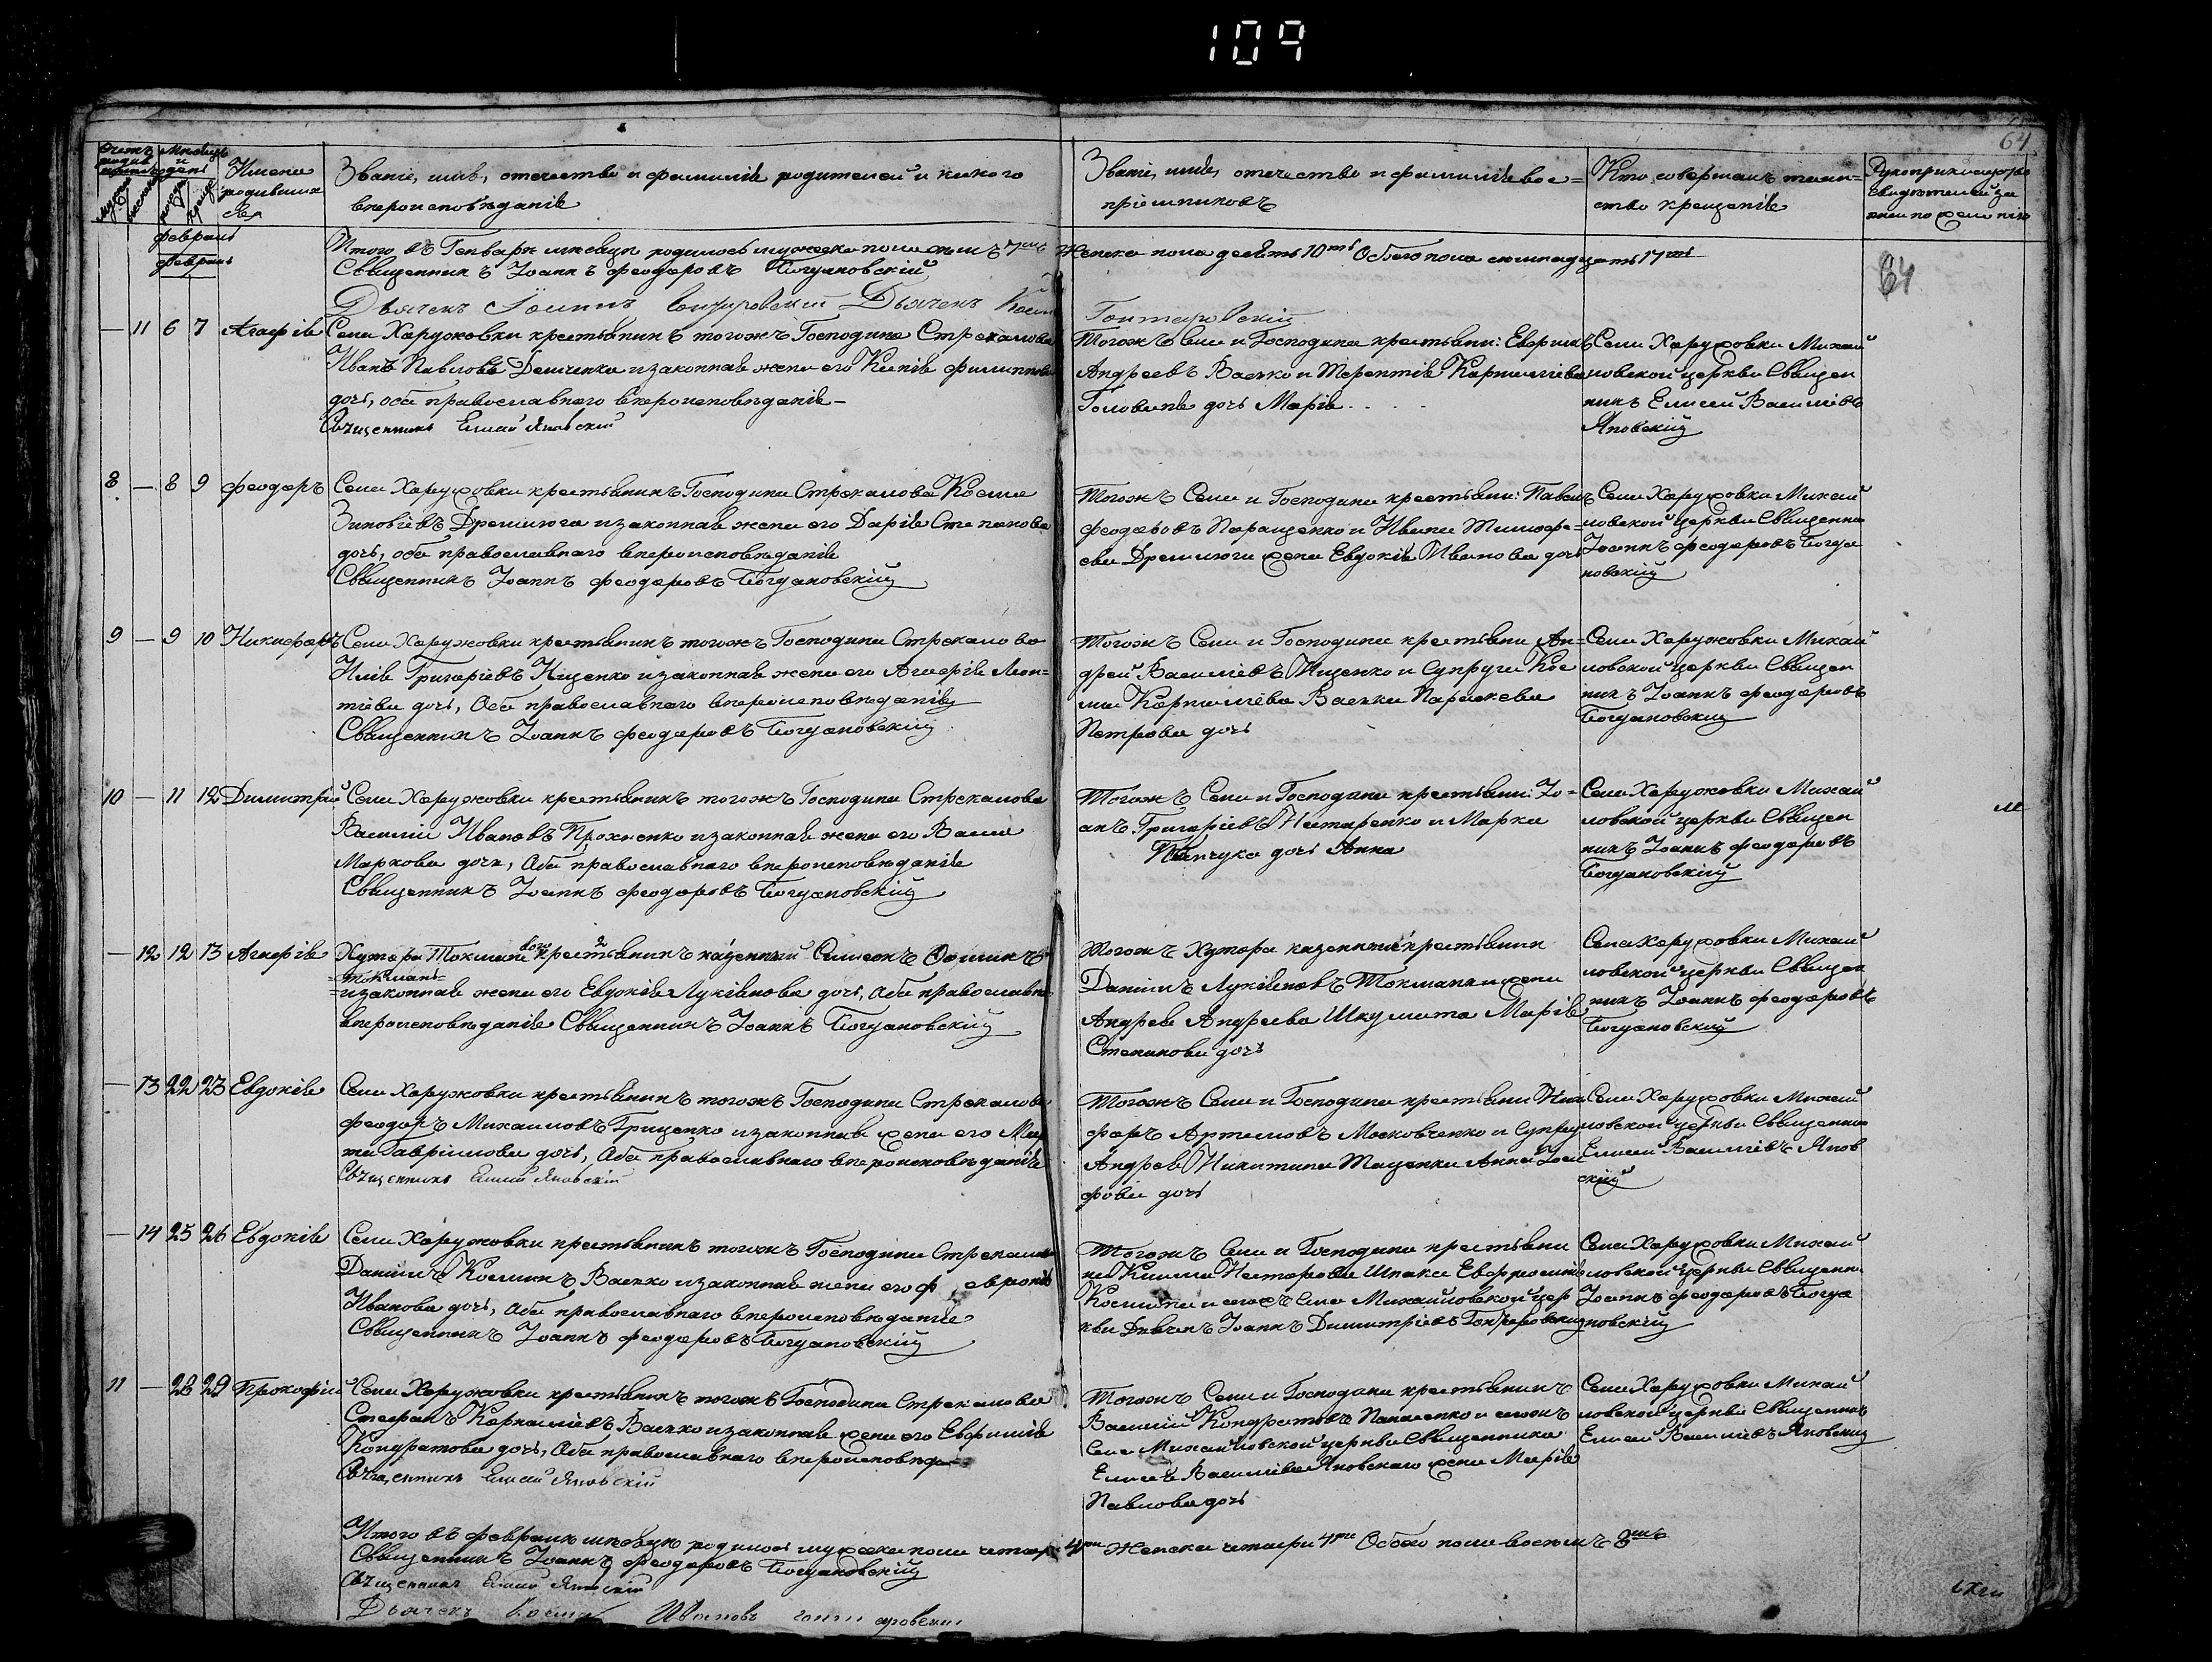 109
64
Счетъ родившихся
мужеска
женска
Мѣсяцъ и день
рожден
крещ
Имена
родившихся
Званіе, имя, отечество и фамилія родителей и какого
вѣроисповѣданія
Званіе, имя, отечество и фамилія вос=
пріемниковъ
Кто совершалъ таин=
ство крещенія
Рукоприкладство
свидѣтелей за
писи по желанію
февраль
февраль
Итого въ Генварѣ мѣсяцѣ родилось мужеска пола семъ 7мъ Женска пола десять 10ть Обоего пола семнадцать 17ть
Священникъ Іоаннъ феодоровъ Богдановскій
64
Дьячекъ Іоаннъ Дьячекъ
— 11 6 7 Агафія
Села Харужовки крестьянинъ тогожъ Господина Стрекалова
Иванъ Павловъ Демченко и законная жена его Ксенія филиппова
дочь, оба православнаго вѣроисповѣданія —
Священникъ Елисей Яновскій
Тогожъ Села и Господина крестьяни:
Андреевъ Васько и Терентія Корнилліева
Головинѣ дочь Марія
Села Харужовки Михай
ловской церкви Священ
никъ Елисей Василіевъ
Яновскій
8 — 8 9 феодоръ
Села Харужовки крестьянинъ Господина Стрекалова Косма
Зиновіевъ Дремлюга и законная жена его Дарія Степанова
дочь, оба православнаго вѣроисповѣданія
Священникъ Іоаннъ феодоровъ Богдановскій
Тогожъ Села и Господина крестьяни: Павелъ
феодоровъ Паращенко и Ивана Тимофе=
ева Дремлюги жена Евдокія Иванова дочь
Села Харужовки Михай
ловской церкви Священни
Іоаннъ феодоровъ Богда
новскій
9 — 9 10 Никифоръ
Села Харужовки крестьянинъ тогожъ Господина Стрекалова
Илія Григоріевъ Ищенко и законная жена его Агафія Леон=
тіева дочь, Оба православнаго вѣроисповѣданія
Священникъ Іоаннъ феодоровъ Богдановскій
Тогожъ Села и Господина крестьяни Ан=
дрей Василіевъ Ищенко и Супруга Кос
мы Корнилліева Васька Параскева
Петрова дочь
Села Харужовки Михай
ловской церкви Священ
никъ Іоаннъ феодоровъ
Богдановскій
10 — 11 12 Димитрій
Села Харужовки крестьянинъ тогожъ Господина Стрекалова
Василій Ивановъ Прохненко и законная жена его Васса
Маркова дочь, Оба православнаго вѣроисповѣданія
Священникъ Іоаннъ феодоровъ Богдановскій
Тогожъ Села и Господина крестьяни: Іо=
анъ Григоріевъ Нестеренко и Марка
дочь Анна
Села Харужовки Михай
ловской церкви Священ
никъ Іоаннъ феодоровъ
Богдановскій
— 12 12 13 Агафія
Хутора крестьянинъ казенный Симеонъ
=Токмань=
и законная жена его Евдокія Лукіянова дочь, Оба православна
вѣроисповѣданія Священникъ Іоаннъ Богдановскій
Тогожъ Хутора казенные крестьянин
Даніилъ Лукіяновъ Токмань и жена
Андрея Андреева Шкумата Марія
Степанова дочь
Села Харужовки Михай
ловской церкви Священ
никъ Іоаннъ феодоровъ
Богдановскій
— 13 22 23 Евдокія
Села Харужовки крестьянинъ тогожъ Господина Стрекалова
феодоръ Михаиловъ Гриценко и законная жена его Мар
фа Гаврілова дочь, Оба православнаго вѣроисповѣданія
Священникъ Елисей Яновскій
Тогожъ Села и Господина крестьяни Ники
форъ Артемовъ Московченко и Супру
Андрея Никитина Таценка Анна Іоси
фова дочь
Села Харужовки Михай
ловской церкви Священни
Елисей Василіевъ Янов
скій
— 14 25 26 Евдокія
Села Харужовки крестьянинъ тогожъ Господина Стрекалова
Даніилъ Косминъ Васько и законная жена его ф евронія
Иванова дочь, Оба православнаго вѣроисповѣданія
Священникъ Іоаннъ феодоровъ Богдановскій
Тогожъ Села и Господина крестьяни
Нестерова Шпака Евфросинія
Космина и Села Михаиловской цер
кви Дьячекъ Іоаннъ Димитріевъ
Села Харужовки Михай
ловской церкви Священни
Іоаннъ феодоровъ Богда
новскій
11 — 28 29 Прокофій
Села Харужовки крестьянинъ тогожъ Господина Стрекалова
Стефанъ Корнилліевъ Васько и законная жена его Евфимія
Кондратова дочь, Оба православнаго вѣроисповѣд
Священникъ Елисей Яновскій
Тогожъ Села и Господина крестьянинъ
Василій Кондратовъ Панасенко и
Села Михайловской церкви Священника
Елисея Василіева Яновскаго жена Марія
Павлова дочь
Села Харужовки Михай
ловской церкви Священникъ
Елисей Василіевъ Яновскій
Итого въ февралѣ мѣсяцѣ родилось мужеска пола четыре 4ре Женска четыри 4ре Обоего пола восемъ 8мъ
Священникъ Іоаннъ феодоровъ Богдановскій
Священникъ Елисей Яновскій
Дьячекъ Косма Ивановъ